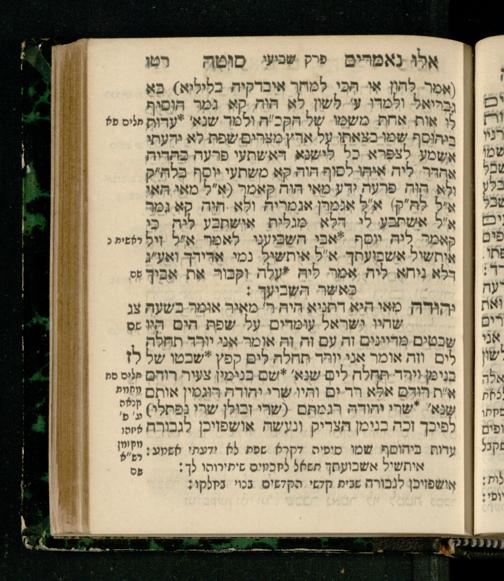 אלו נאמרים פרק שביעי סוטה רטו
(אמר להון אי הכי למחר איבדקיה בליליא) בא
גבריאל ולמדו ע׳ לשון לא הוה קא גמר הוסיף
לו אות אחת משמו של הקב״ה ולמד שנא׳ *עדות
תהלים פא
ביהוסף שמו בצאתו על ארץ מצרים שפת לא ידעתי
אשמע לצפרא כל לישנא דאשתעי פרעה בהדיה
אהדר ליה איהו לסוף הוה קא משתעי יוסף בלה״ק
ולא הוה פרעה ידע מאי הוה קאמר (א״ל מאי האי
א״ל לה״ק) א״ל אגמרן אגמריה ולא הוה קא גמר
א״ל אשתבע לי דלא מגלית אישתבע ליה כי
קאמר ליה יוסף *אבי השביעני לאמר א״ל זיל
ראשית נ
איתשיל אשבועתך א״ל איתשיל נמי אדידך ואע״ג
דלא ניחא ליה אמר ליה *עלה וקבור את אביך
שם
כאשר השביעך :
יהודה מאי היא דתניא היה ר׳ מאיר אומר בשעה
צג
שהיו ישראל עומדים על שפת הים היו
שם
שבטים מדיינים זה עם זה זה אומר אני יורד תחלה
לים וזה אומר אני יורד תחלה לים קפץ *שבטו של
לז
בנימן וירד תחלה לים שנא׳ *שם בנימין צעיר רודם
תהלים סח
א״ת רודם אלא רד ים והיו שרי יהודה רוגמין אותם
שנא׳ *שרי יהודה רגמתם (שרי זבולן שרי נפתלי)
קנאה
לפיכך זכה בנימן הצדיק ונעשה אושפזיכן לגבורה
עדות ביהוסף שמו סיפיה דקרא שפת לא ידעתי אשמע :
איתשיל אשבועתך תשאל לחכמים שיתירוהו לך :
שם
אושפזיכן לגבורה שבית קדשי הקדשים בנוי בחלקו :